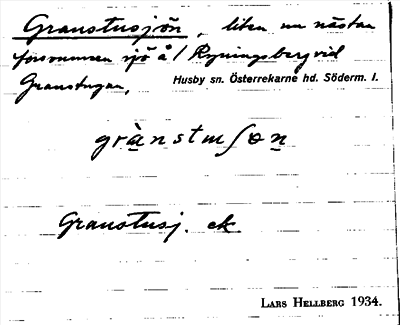 Granstusjön, liten nu nästan
försvunnen sjö å/ Ryningsberg vid
Granstugan,
Husby sn. Österrekarne hd. Söderm. l.
grànstusʃo̱n
Granstusj. ek
LARS HELLBERG 1934.